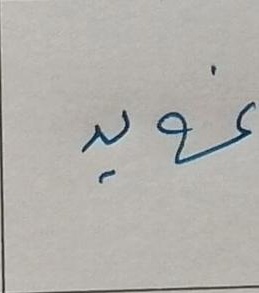 غويد